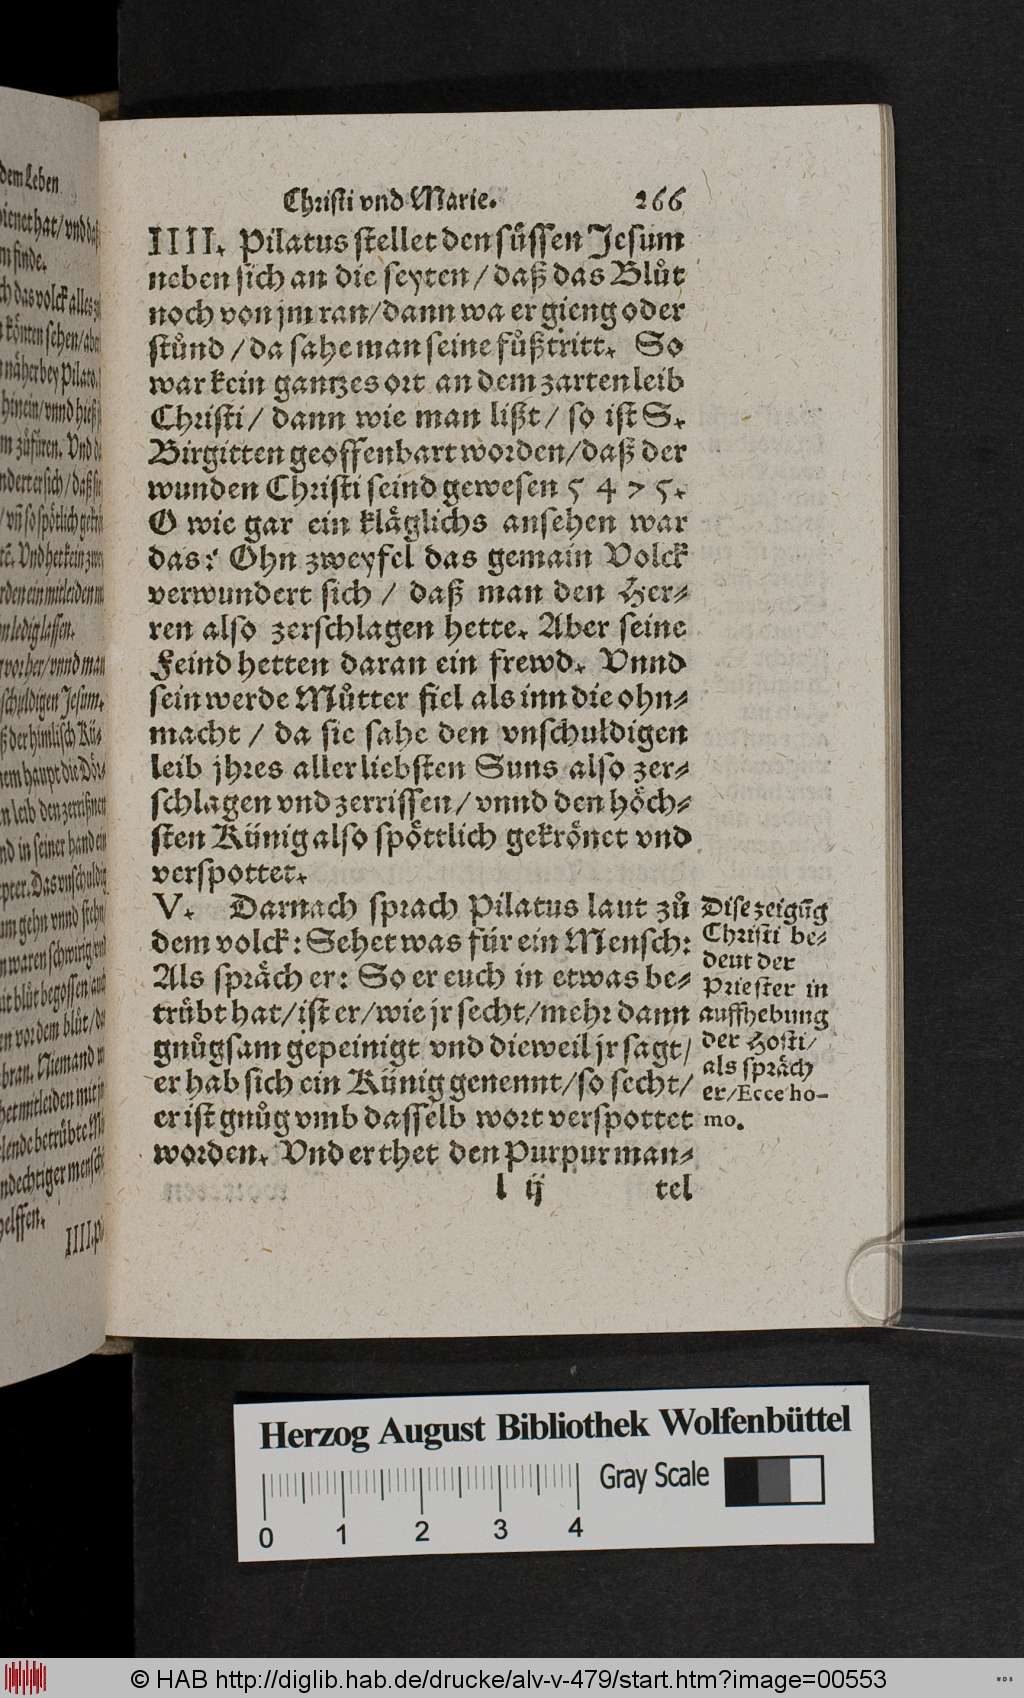 dem Leben
dienet hat/ vnd daß
finde.
das volck alles
könten sehen/ aber
näher bey Pilato.
hinein/ vnnd hieß
zůfüren. Vnd
sich/ daß
/ vñ so spötlich
Vnd het kein
ein mitleiden
ledig lassen.
vorher/ vnnd man
schuldigen Jesum.
der himlisch Kü-
haupt die Dör-
leib den zerrißnen
in seiner hand ein
Das vnschuldig
gehn vnnd stehn
waren schwirig
blůt begossen/
vor dem blůt/
Niemand
mitleiden mit
elende betrůbte
andechtiger mensch
helffen.
IIII. Pi
Christi vnd Marie. 266
IIII. Pilatus stellet den sůssen Jesum
neben sich an die seyten/ daß das Blůt
noch von jm ran/ dann wa er gieng oder
stůnd/ da sahe man seine fůßtritt. So
war kein gantzes ort an dem zarten leib
Christi/ dann wie man lißt/ so ist S.
Birgitten geoffenbart worden/ daß der
wunden Christi seind gewesen 5475.
O wie gar ein kläglichs ansehen war
das? Ohn zweyfel das gemain Volck
verwundert sich/ daß man den Her-
ren also zerschlagen hette. Aber seine
Feind hetten daran ein frewd. Vnnd
sein werde Můtter fiel als inn die ohn-
macht/ da sie sahe den vnschuldigen
leib jhres allerliebsten Suns also zer-
schlagen vnd zerrissen/ vnnd den höch-
sten Künig also spöttlich gekrönet vnd
verspottet.
V. Darnach sprach Pilatus laut zů
dem volck: Sehet was für ein Mensch:
Als spräch er: So er euch in etwas be-
trůbt hat/ ist er/ wie jr secht/ mehr dann
gnůgsam gepeinigt vnd dieweil jr sagt/
er hab sich ein Künig genennt/ so secht/
er ist gnůg vmb dasselb wort verspottet
worden. Vnd er thet den Purpurman-
l ij tel
Dise zeigũg
Christi be-
deut der
Priester in
auffhebung
der Hosti/
als spräch
er/ Ecce ho-
mo.
Herzog August Bibliothek Wolfenbüttel
Gray Scale
0 1 2 3 4
© HAB http://diglib.hab.de/drucke/alv-v-479/start.htm?image=00553